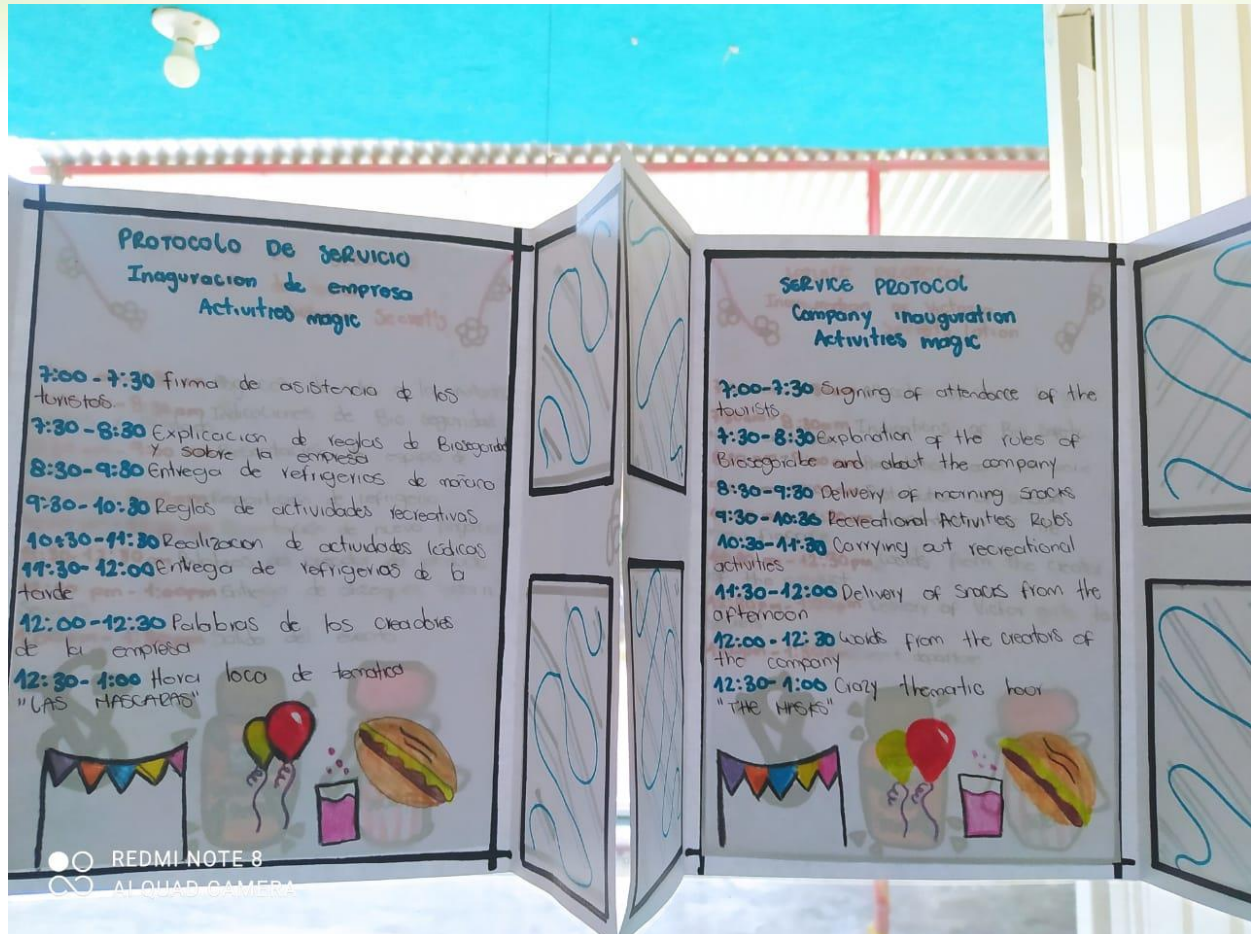 PROTOCOLO DE SERVICIO
Inaguracion de empresa
Activities magic
7:00 - 7:30 firma de asistencia de los
turistas
7:30 - 8:30 Explicacion de reglas de
y sobre la empresa
8:30 - 9:30 Entrega de refrigerios de
9:30 - 10:30 Reglas de actividades recreativas
10:30 - 11:30 Realizacion de actividades
11:30 - 12:00 Entrega de refrigerios de la
tarde
12:00 - 12:30 Palabras de los creadores
de la empresa
12:30 - 1:00 Hora loca de tematica
"LAS MASCARAS"
SERVICE PROTOCOL
Company inauguration
Activities magic
7:00-7:30 Signing of attendance of the
tourists
7:30-8:30 Explanation of the rules of
and about the company
8:30-9:30 Delivery of morning snacks
9:30-10:30 Recreational Activities
10:30-11:30 Carrying out recreational
activities
11:30-12:00 Delivery of snacks from the
afternoon
12:00-12:30 words from the creators of
the company
12:30-1:00 Crazy thematic hour
"THE MASKS"
REDMI NOTE 8
AI QUAD CAMERA